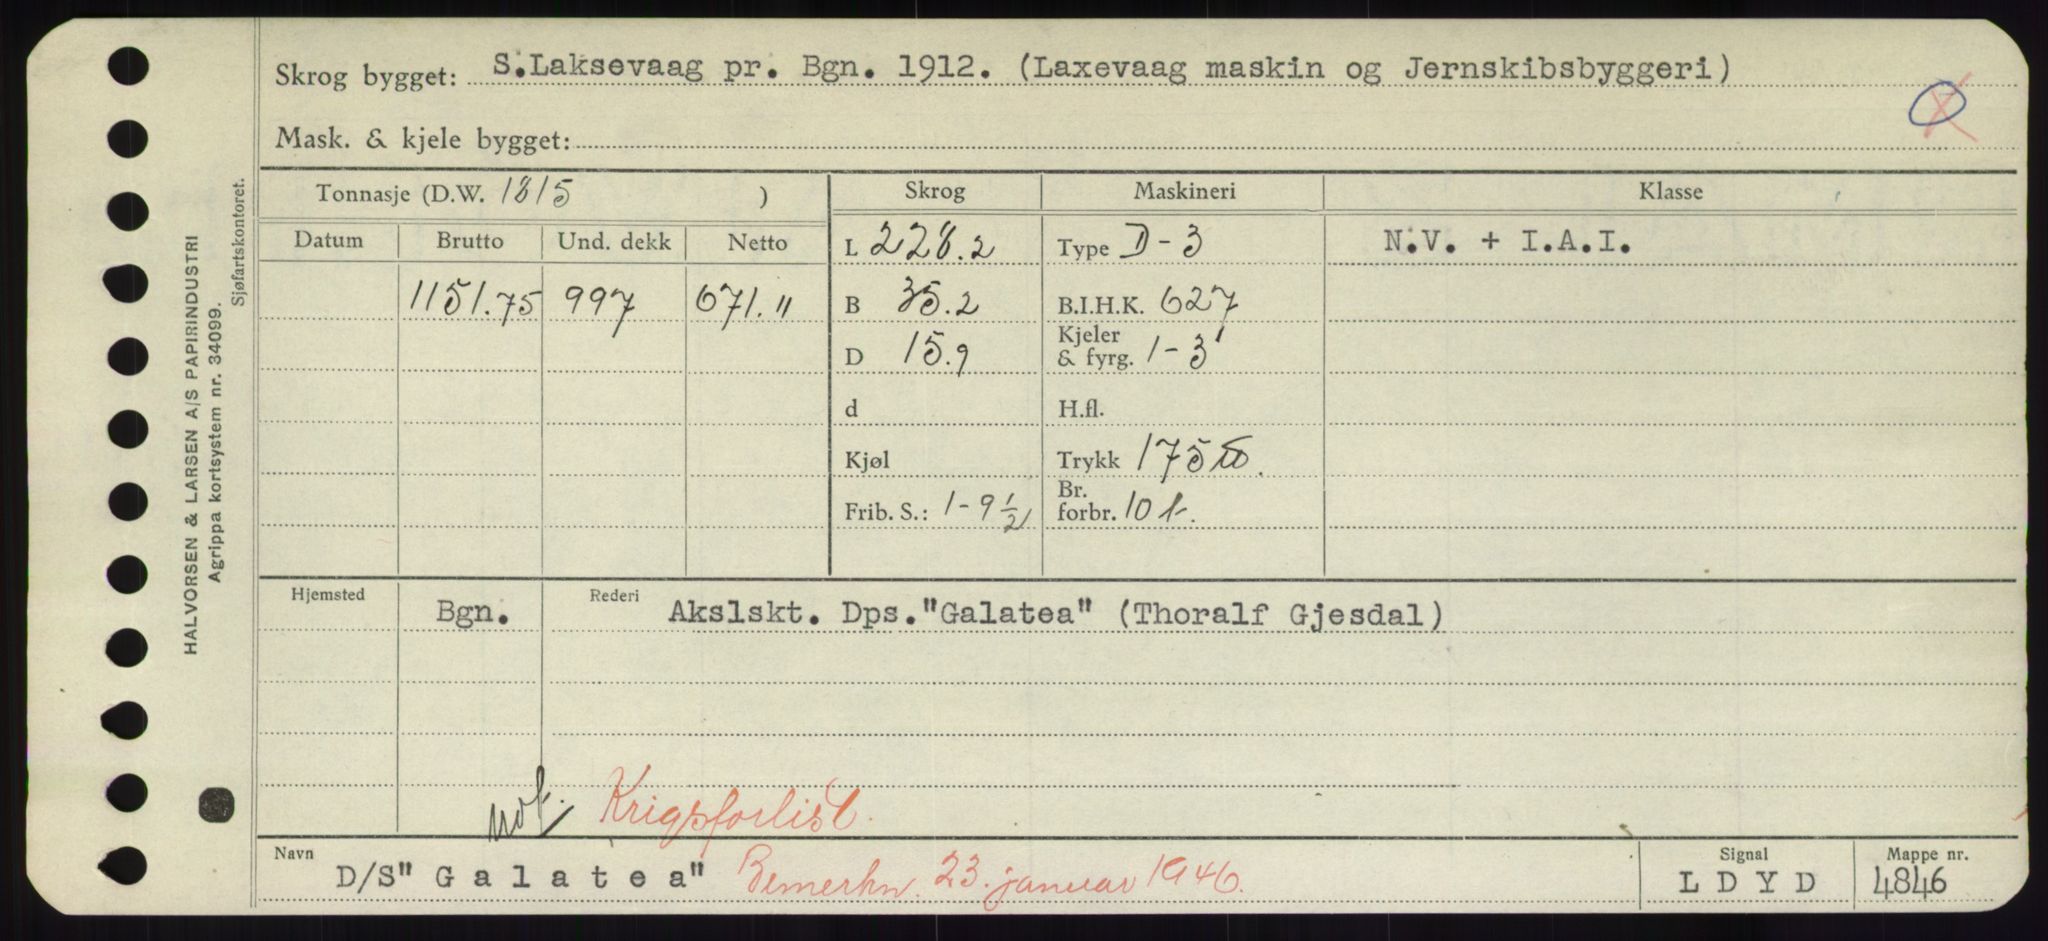 Skrog bygget: S.Laksevaag pr. Bgn. 1912. (Laxevaag maskin og Jernskibsbyggeri)
Mask. & kjele bygget:
Tonnasje (D.W. 1815 )
Skrog
Maskineri
Klasse
Datum Brutto Und. dekk Netto
L 228.2
Type D-3
N.V. + I.A.I.
1151.75 997 671.11
B 35.2
B.I.H.K. 627
D 15.9
Kjeler & fyrg. 1-3
d
H.fl.
Kjøl
Trykk 175
Frib. S.: 1-9 1/2
Br. forbr. 10 t.
Hjemsted Bgn.
Rederi Akslskt. Dps."Galatea" (Thoralf Gjesdal)
not. Krigsforlist.
Navn D/S" G a l a t e a" Bemerkn. 23. januar 1946.
Signal L D Y D
Mappe nr. 4846
HALVORSEN & LARSEN A/S PAPIRINDUSTRI
Agrippa kortsystem nr. 34099.
Sjøfartskontoret.